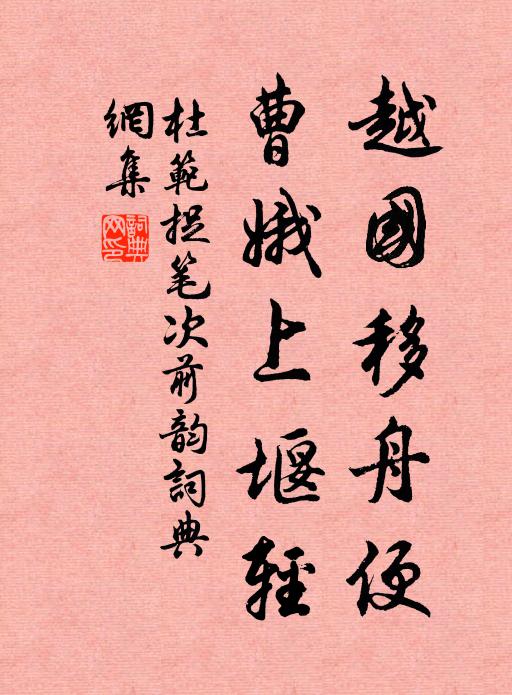 越國移舟便
曹娥上堰輕
杜範捉笔次前韵詞典
網集
詞典
网印